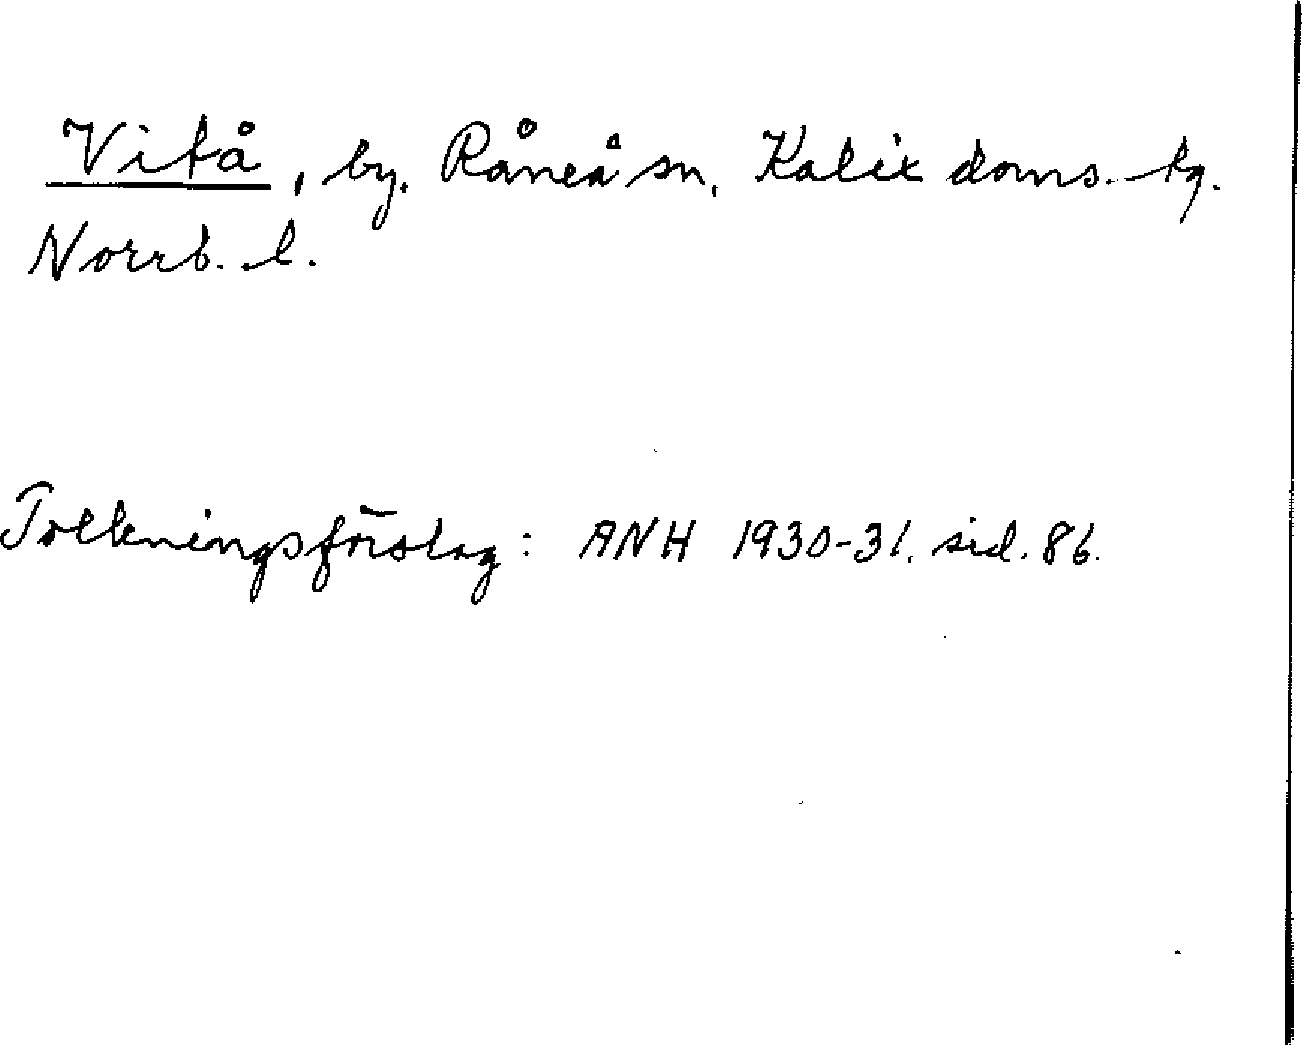 Vitå, by. Råneå sn, Kalix doms. tg.
Norrb. l.
Tolkningsförslag: ANH 1930-31. sid. 86.